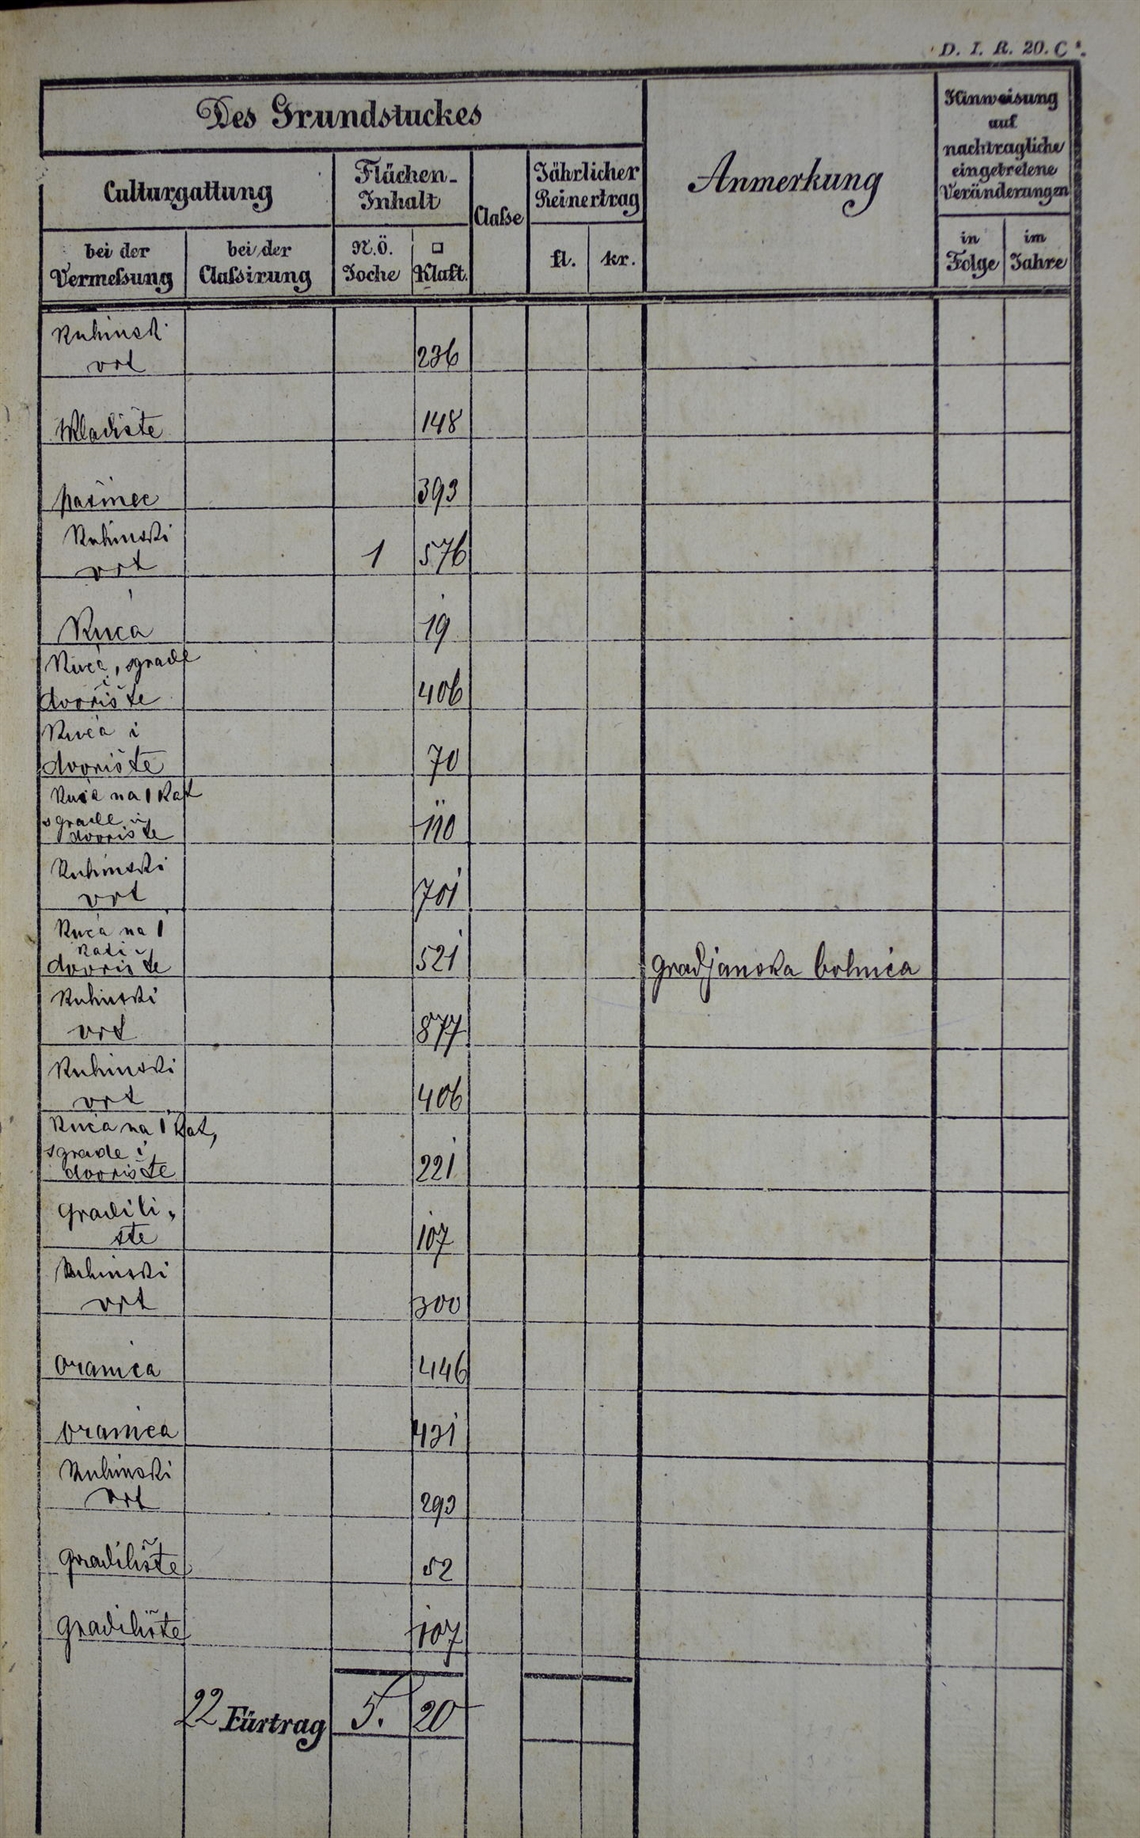 D. I. R. 20. C
Des Grundstuckes
Anmerkung
Hinweisung
auf
nachtragliche
eingetretene
Veränderungen
Culturgattung
Flächen-
Inhalt
Claße
Jährlicher
Reinertrag
bei der
Vermeßung
bei der
Claßirung
N.Ö.
Joche
□
Klaft.
fl.
kr.
in
Folge
im
Jahre
Kuhinski
vrt 236
148
pašinec 393
Kuhinski
vrt 1 576
Kuća 19
Kuća, sgrade
i
dvorište 406
Kuća i
dvorište 70
Kuća na 1 Kat
sgrade i
dvorište 110
Kuhinski
vrt 701
Kuća na 1
Kat i
dvorište 521 gradjanska bolnica
Kuhinski
vrt 877
Kuhinski
vrt 406
Kuća na 1 Kat,
sgrade i
dvorište 221
gradili-
šte 107
Kuhinski
vrt 300
oranica 446
oranica 431
Kuhinski
vrt 293
gradilište 52
gradilište 107
22 Fürtrag 5. 20